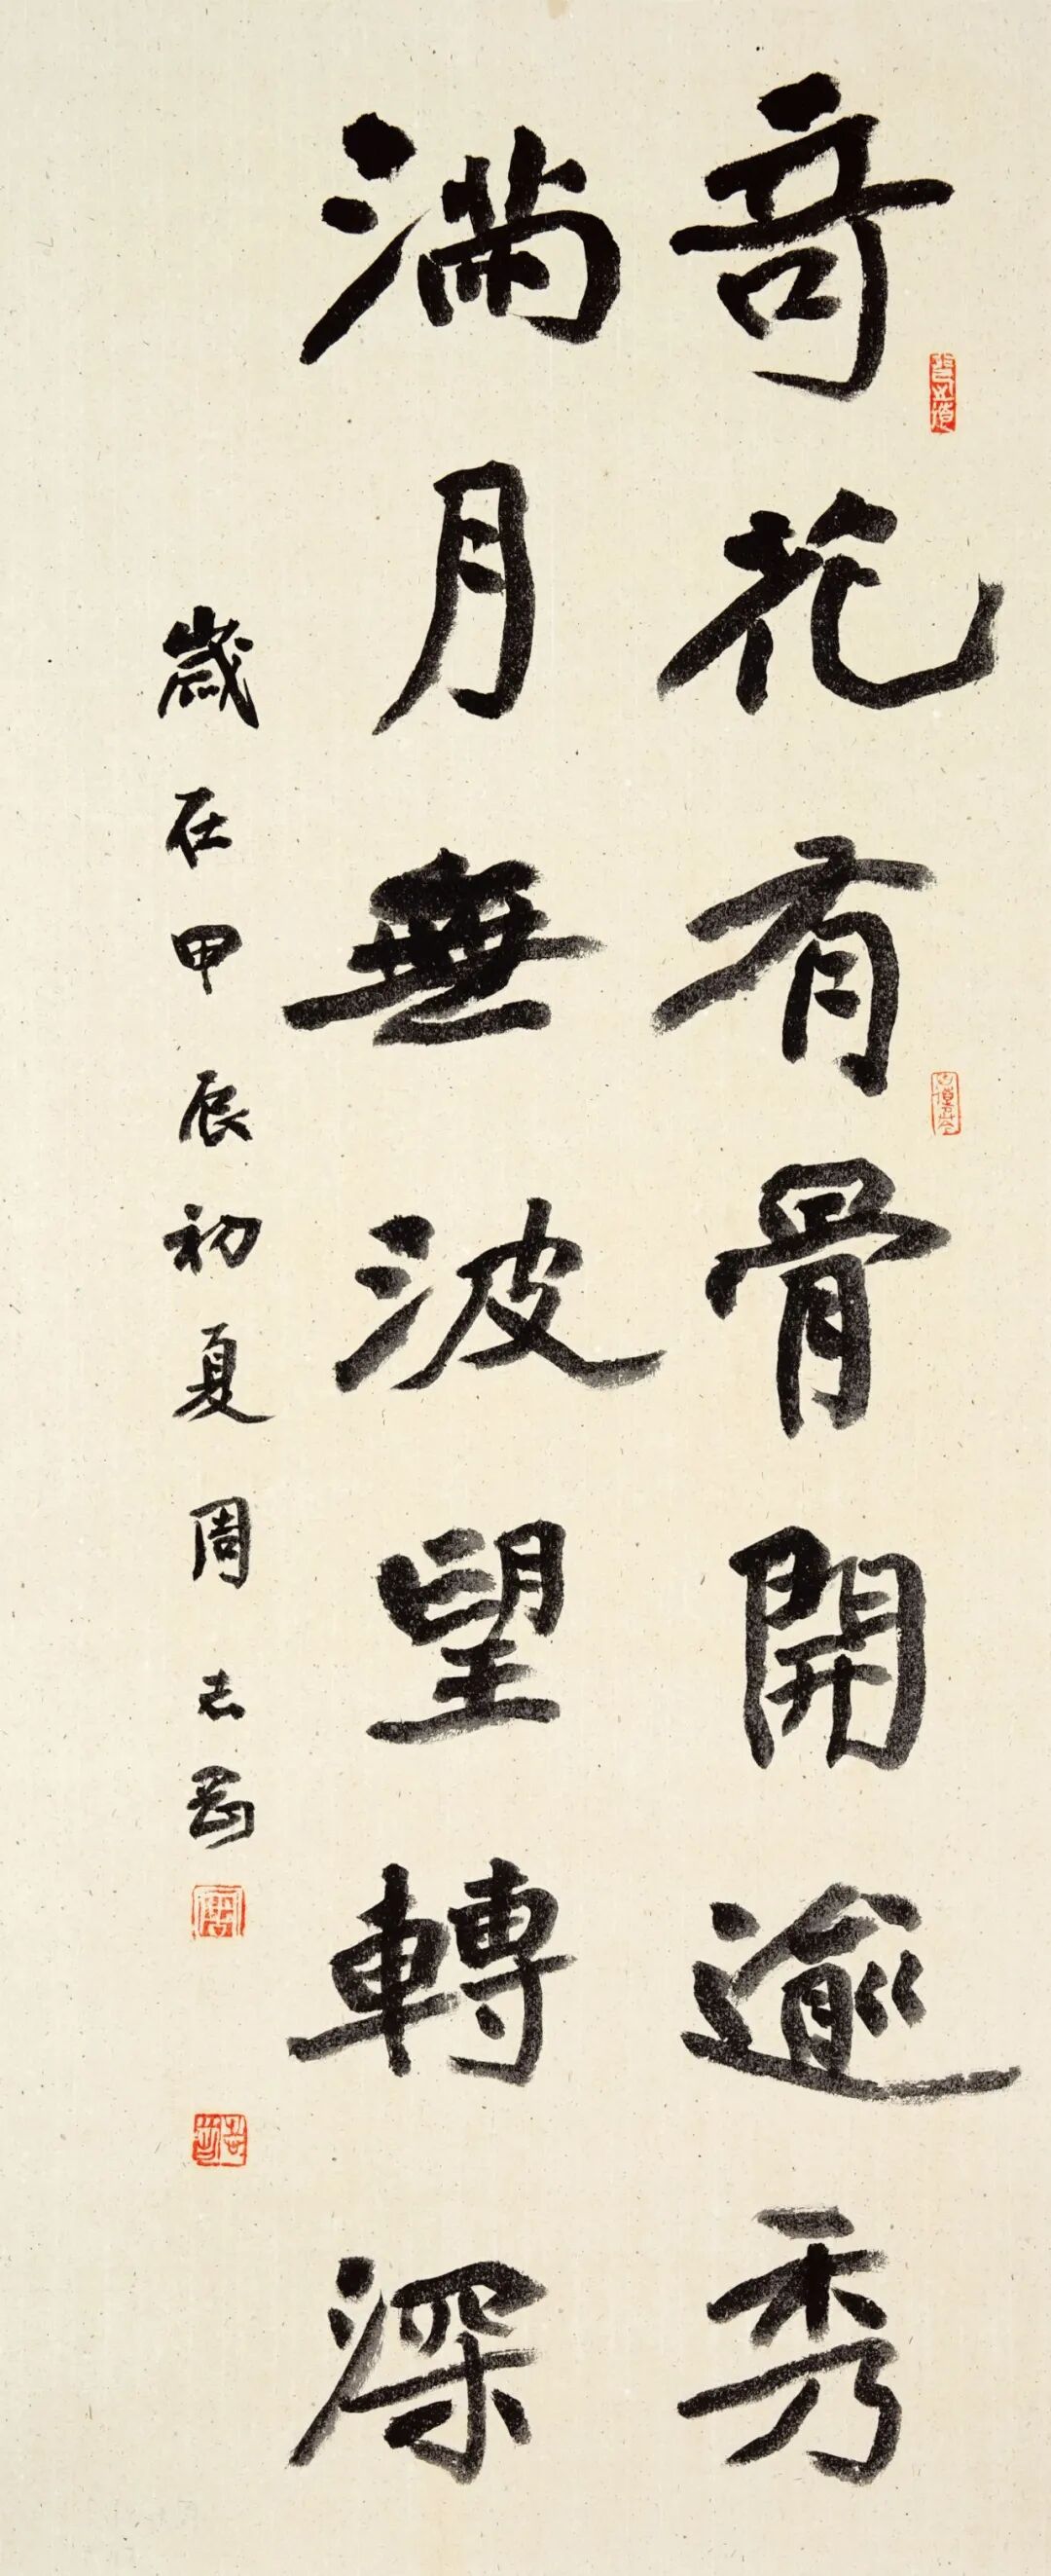 竒花有骨開逾秀
滿月無波望轉深
歲在甲辰初夏周志高